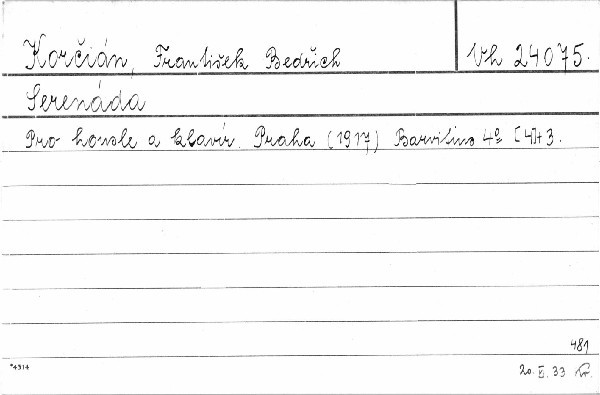 Korčián, František Bedřich
Vh 24075.
Serenáda
Pro housle a klavír. Praha (1917) Barvitius 4º [4]+3.
481
*4314
20. II. 33